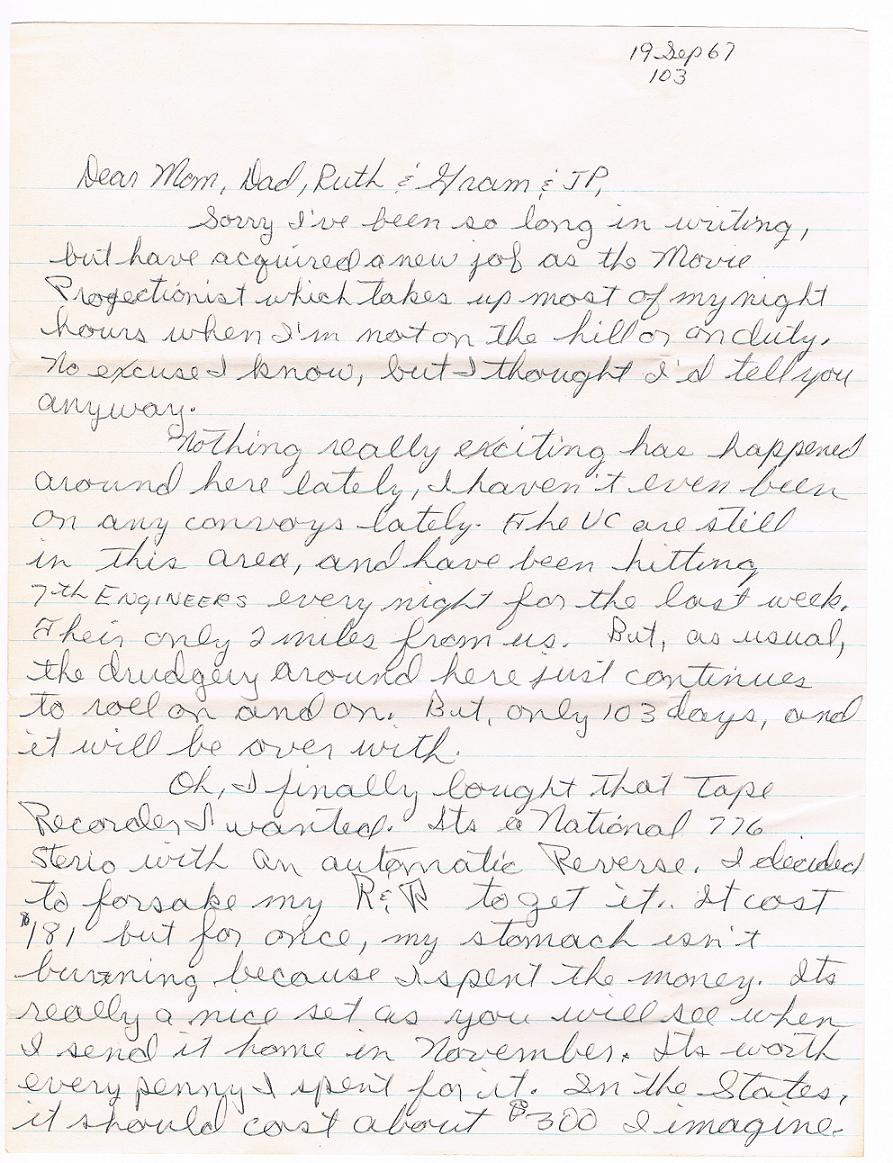 19 Sep 67
103
Dear Mom, Dad, Ruth & Gram & JP,
Sorry I've been so long in writing,
but have acquired a new job as the Movie
Projectionist which takes up most of my night
hours when I'm not on the hill or on duty.
No excuse I know, but I thought I'd tell you
anyway.
Nothing really exciting has happened
around here lately, I haven't even been
on any convoys lately. The VC are still
in this area, and have been hitting
7th ENGINEERS every night for the last week.
Their only 2 miles from us. But, as usual,
the drudgery around here just continues
to roll on and on. But, only 103 days, and
it will be over with.
Oh, I finally bought that Tape
Recorder I wanted. Its a National 776
Sterio with an automatic Reverse. I decided
to forsake my R&R to get it.. It cost
$181 but for once, my stomach isn't
burning because I spent the money. Its
really a nice set as you will see when
I send it home in November. Its worth
every penny I spent for it. In the States,
it should cost about $300 I imagine.